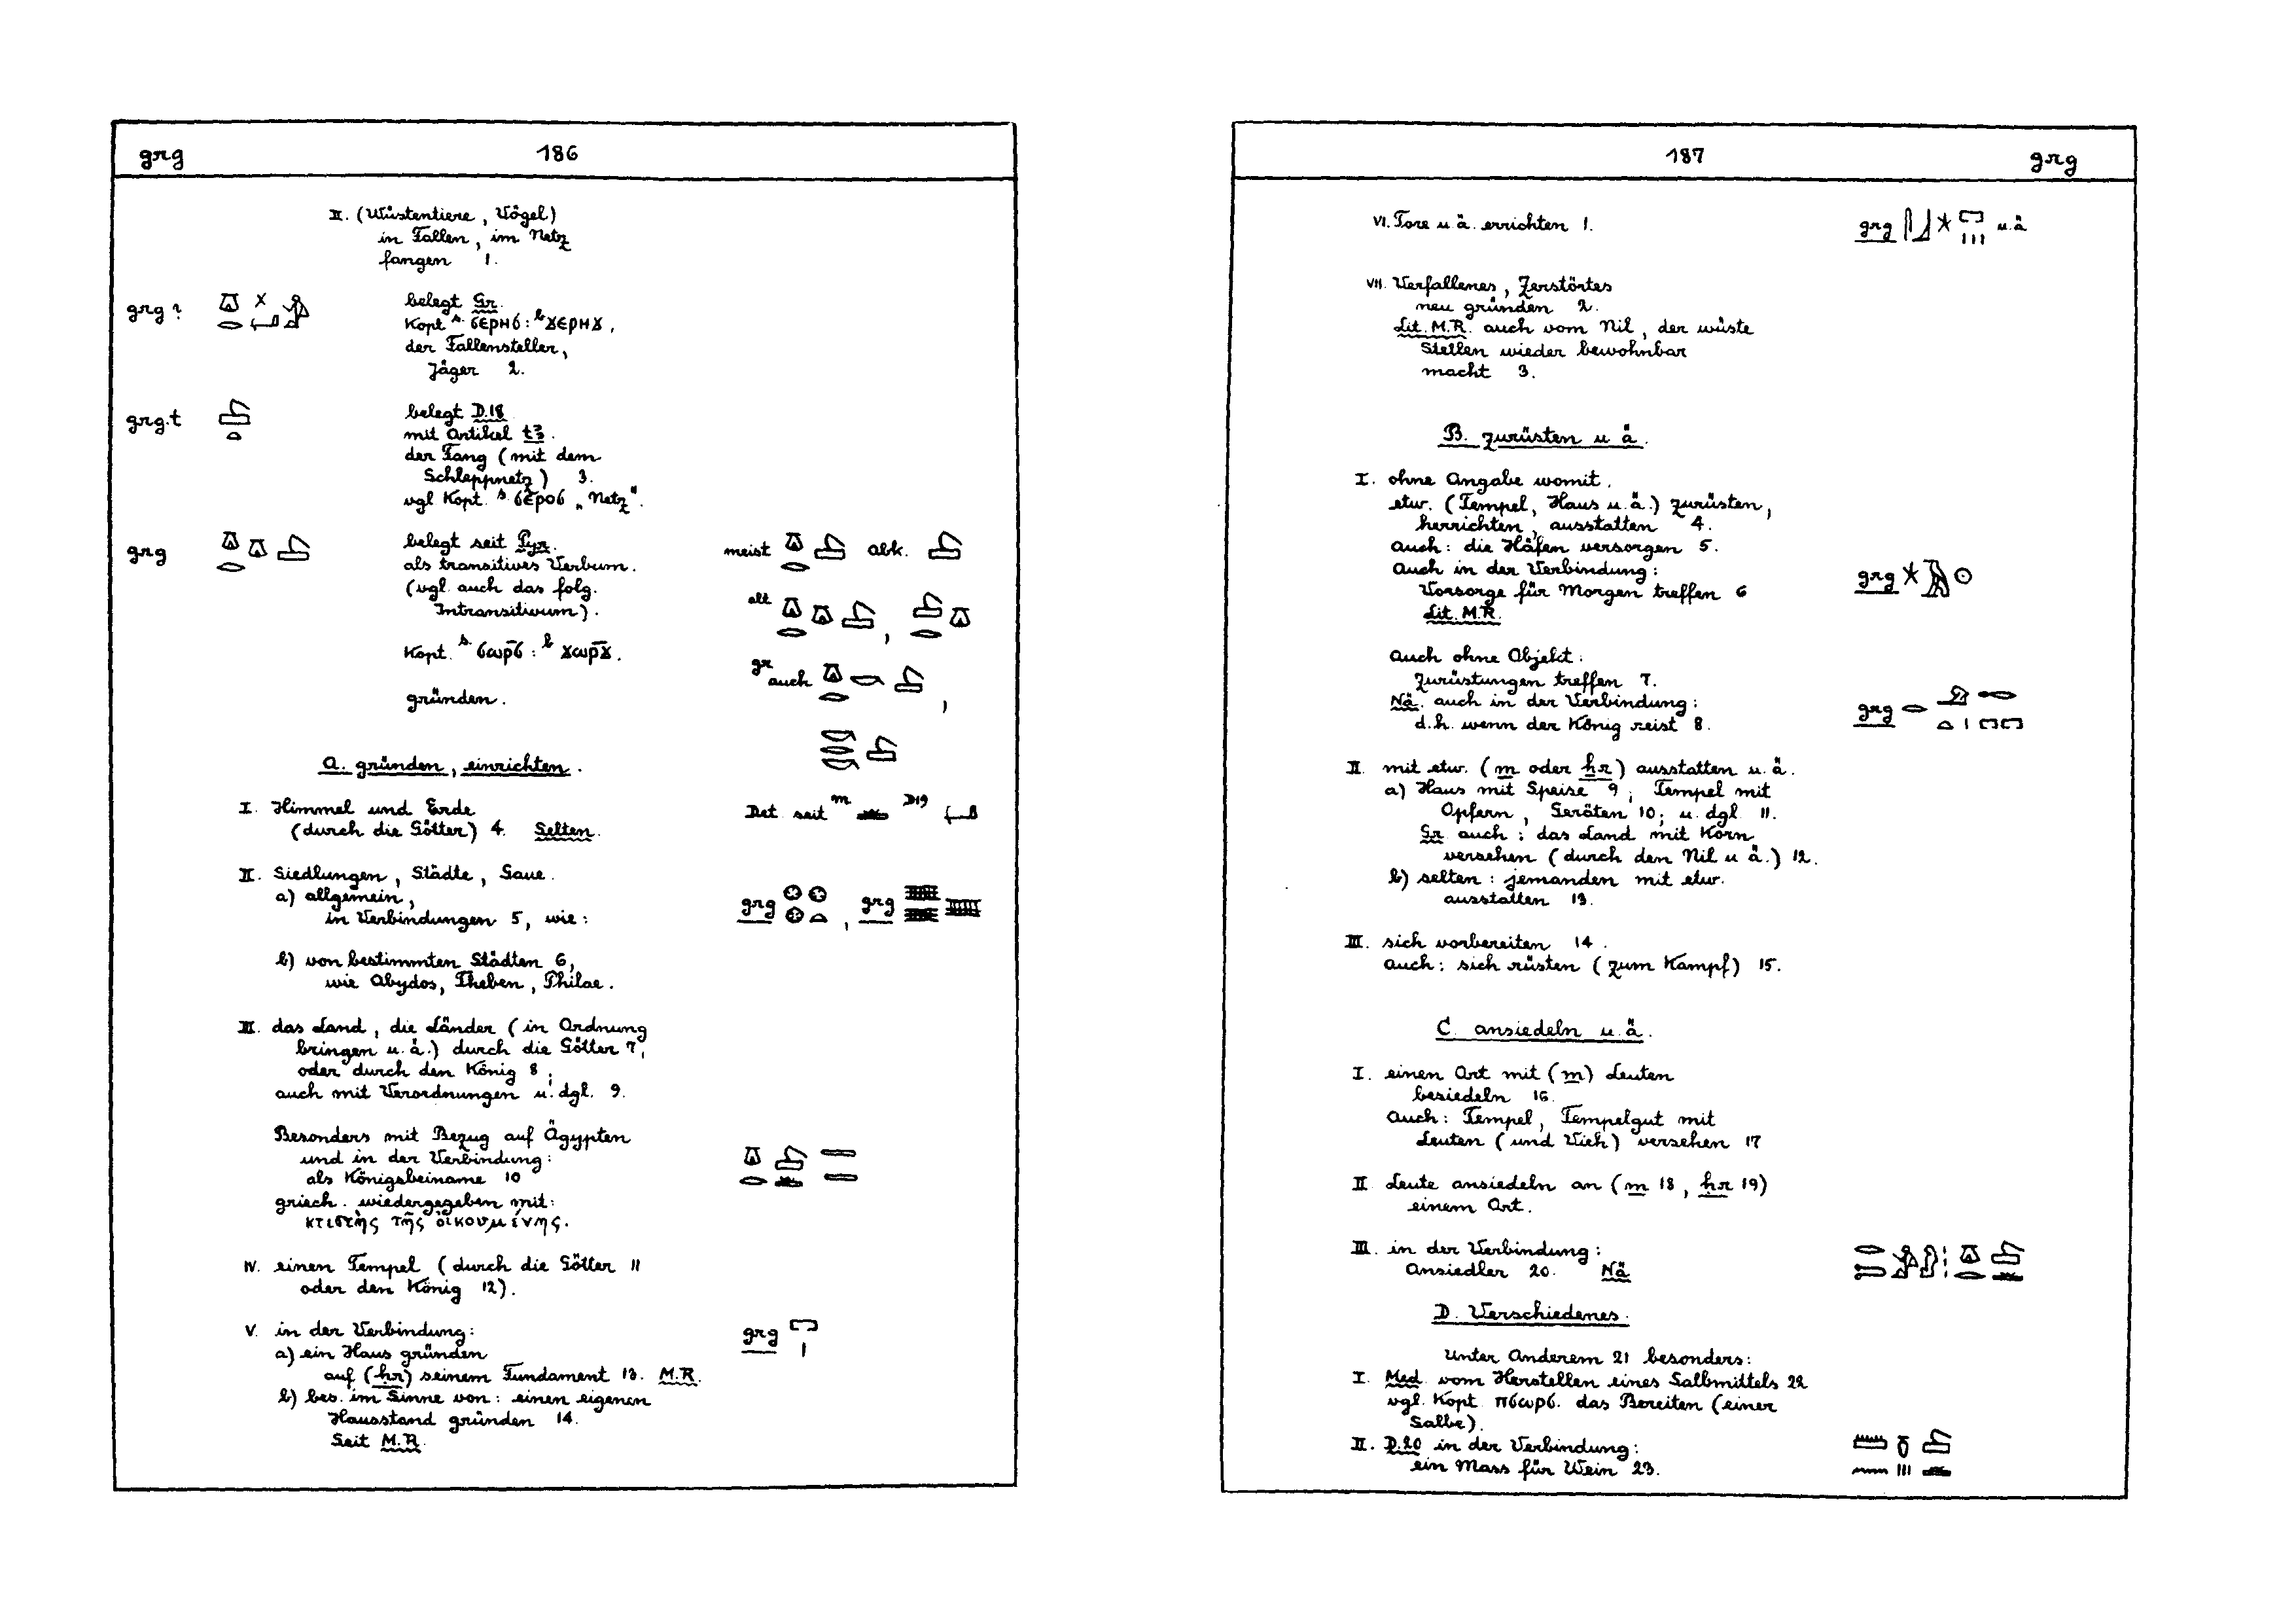 grg 186
II. (Wüstentiere, Vögel)
in Fallen, im Netz
fangen 1.
grg ? belegt Gr.
Kopt. S. ϭⲉⲣⲏϭ : B ϫⲉⲣⲏϫ,
der Fallensteller,
Jäger 2.
grg.t belegt D.18
mit Artikel tꜣ.
der Fang (mit dem
Schleppnetz) 3.
vgl Kopt. S. ϭⲉ̄ⲣⲟϭ „Netz“.
grg belegt seit Pyr. meist abk.
als transitives Verbum.
(vgl. auch das folg. alt
Intransitivum).
Kopt. S. ϭⲱⲣⲡ̄ϭ : B ϫⲱⲣϫ̄. gr auch
gründen.
A. gründen, einrichten.
I. Himmel und Erde Det. seit m D19
(durch die Götter) 4. Selten.
II. Siedlungen, Städte, Gaue.
a) allgemein,
in Verbindungen 5, wie: grg , grg
b) von bestimmten Städten 6,
wie Abydos, Theben, Philae.
III. das Land, die Länder (in Ordnung
bringen u.ä.) durch die Götter 7,
oder durch den König 8;
auch mit Verordnungen u. dgl. 9.
Besonders mit Bezug auf Ägypten
und in der Verbindung:
als Königsbeiname 10
griech. wiedergegeben mit:
κτιστὴς τῆς οἰκουμένης.
IV. einen Tempel (durch die Götter 11
oder den König 12).
V. in der Verbindung: grg
a) ein Haus gründen
auf (ḥr) seinem Fundament 13. M.R.
b) bes. im Sinne von: einen eigenen
Hausstand gründen 14.
Seit M.R.
187 grg
VI. Tore u.ä. errichten 1. grg u.ä
VII. Verfallenes, Zerstörtes
neu gründen 2.
Lit. M.R. auch vom Nil, der wüste
Stellen wieder bewohnbar
macht 3.
B. zurüsten u ä.
I. ohne Angabe womit.
etw. (Tempel, Haus u.ä.) zurüsten,
herrichten, ausstatten 4.
auch: die Häfen versorgen 5.
Auch in der Verbindung: grg
Vorsorge für Morgen treffen 6
Lit. M.R.
Auch ohne Objekt:
Zurüstungen treffen 7.
Nä. auch in der Verbindung: grg
d.h. wenn der König reist 8.
II. mit etw. (m oder ḥr) ausstatten u.ä.
a) Haus mit Speise 9; Tempel mit
Opfern, Geräten 10; u. dgl 11.
Gr auch: das Land mit Korn
versehen (durch den Nil u ä.) 12.
b) selten: jemanden mit etw.
ausstatten 13.
III. sich vorbereiten 14.
auch: sich rüsten (zum Kampf) 15.
C. ansiedeln u.ä.
I. einen Ort mit (m) Leuten
besiedeln 16.
Auch: Tempel, Tempelgut mit
Leuten (und Vieh) versehen 17
II Leute ansiedeln an (m 18, ḥr 19)
einem Ort.
III. in der Verbindung:
Ansiedler 20. Nä
D. Verschiedenes.
Unter Anderem 21 besonders:
I. Med. vom Herstellen eines Salbmittels 22
vgl. Kopt. ⲡϭⲱⲣϭ. das Bereiten (einer
Salbe).
II. D.20 in der Verbindung:
ein Mass für Wein 23.